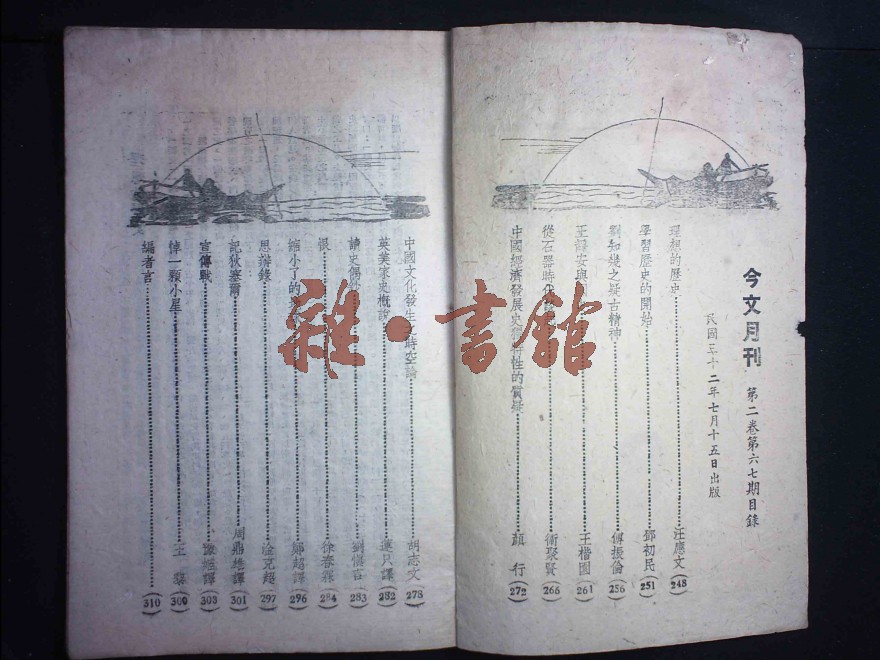 今文月刊
第二卷第六七期目錄
民國三十二年七月十五日出版
理想的歷史 汪應文(248)
學習歷史的開始 鄧初民(251)
劉知幾之疑古精神 傅振倫(256)
王靜安與 王楷圖(261)
從石器時代 衞聚賢(266)
中國經濟發展史 特性的質疑 顏行(272)
中國文化發生 時空論 胡志文(278)
英美家史概說 只譯(282)
讀史偶 劉 言(283)
恨 徐春霖(284)
縮小了的 鄭超譯(296)
思辨錄 淦克超(297)
記狄塞爾 周鼎 譯(301)
宣傳戰 譯(303)
悼一顆小星 王 (309)
編者言 (310)
雜·書館